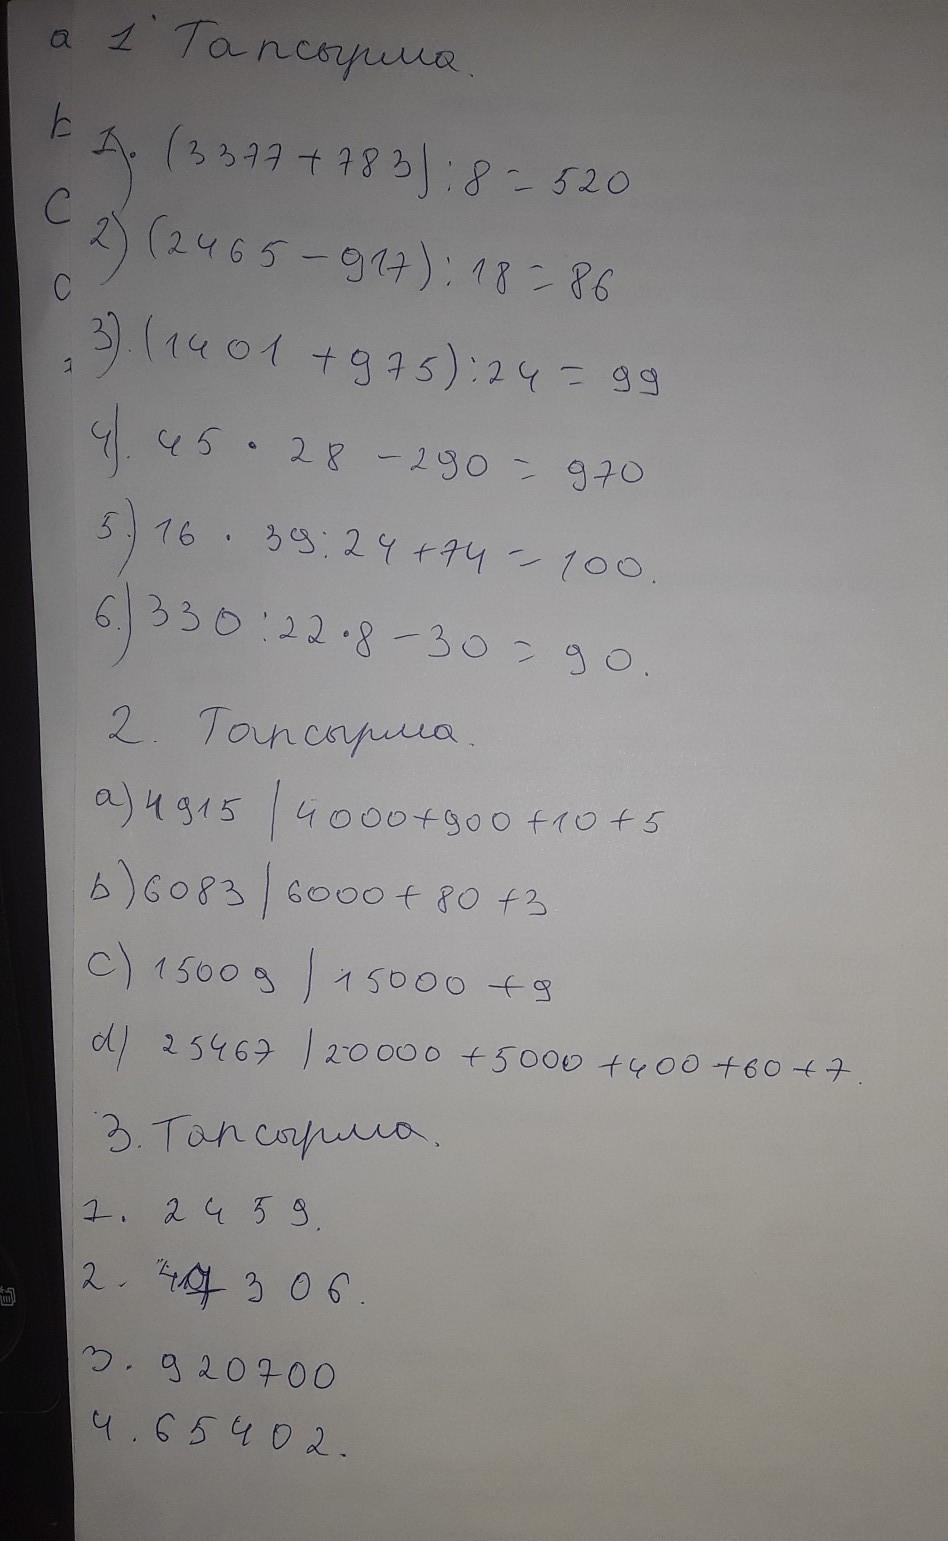 a 1 Тапсырма.
b
1). (3377+783):8=520
c
2) (2465-917):18=86
c
3). (1401+975):24=99
4). 45 · 28 -290 = 970
5.) 16 · 39:24+74=100.
6.) 330:22·8-30=90.
2. Тапсырма.
a) 4915 | 4000+900+10+5
b) 6083 | 6000+80+3
c) 15009 | 15000+9
d) 25467 | 20000+5000+400+60+7.
3. Тапсырма.
1. 2459.
2. 306.
3. 920700
4. 65402.